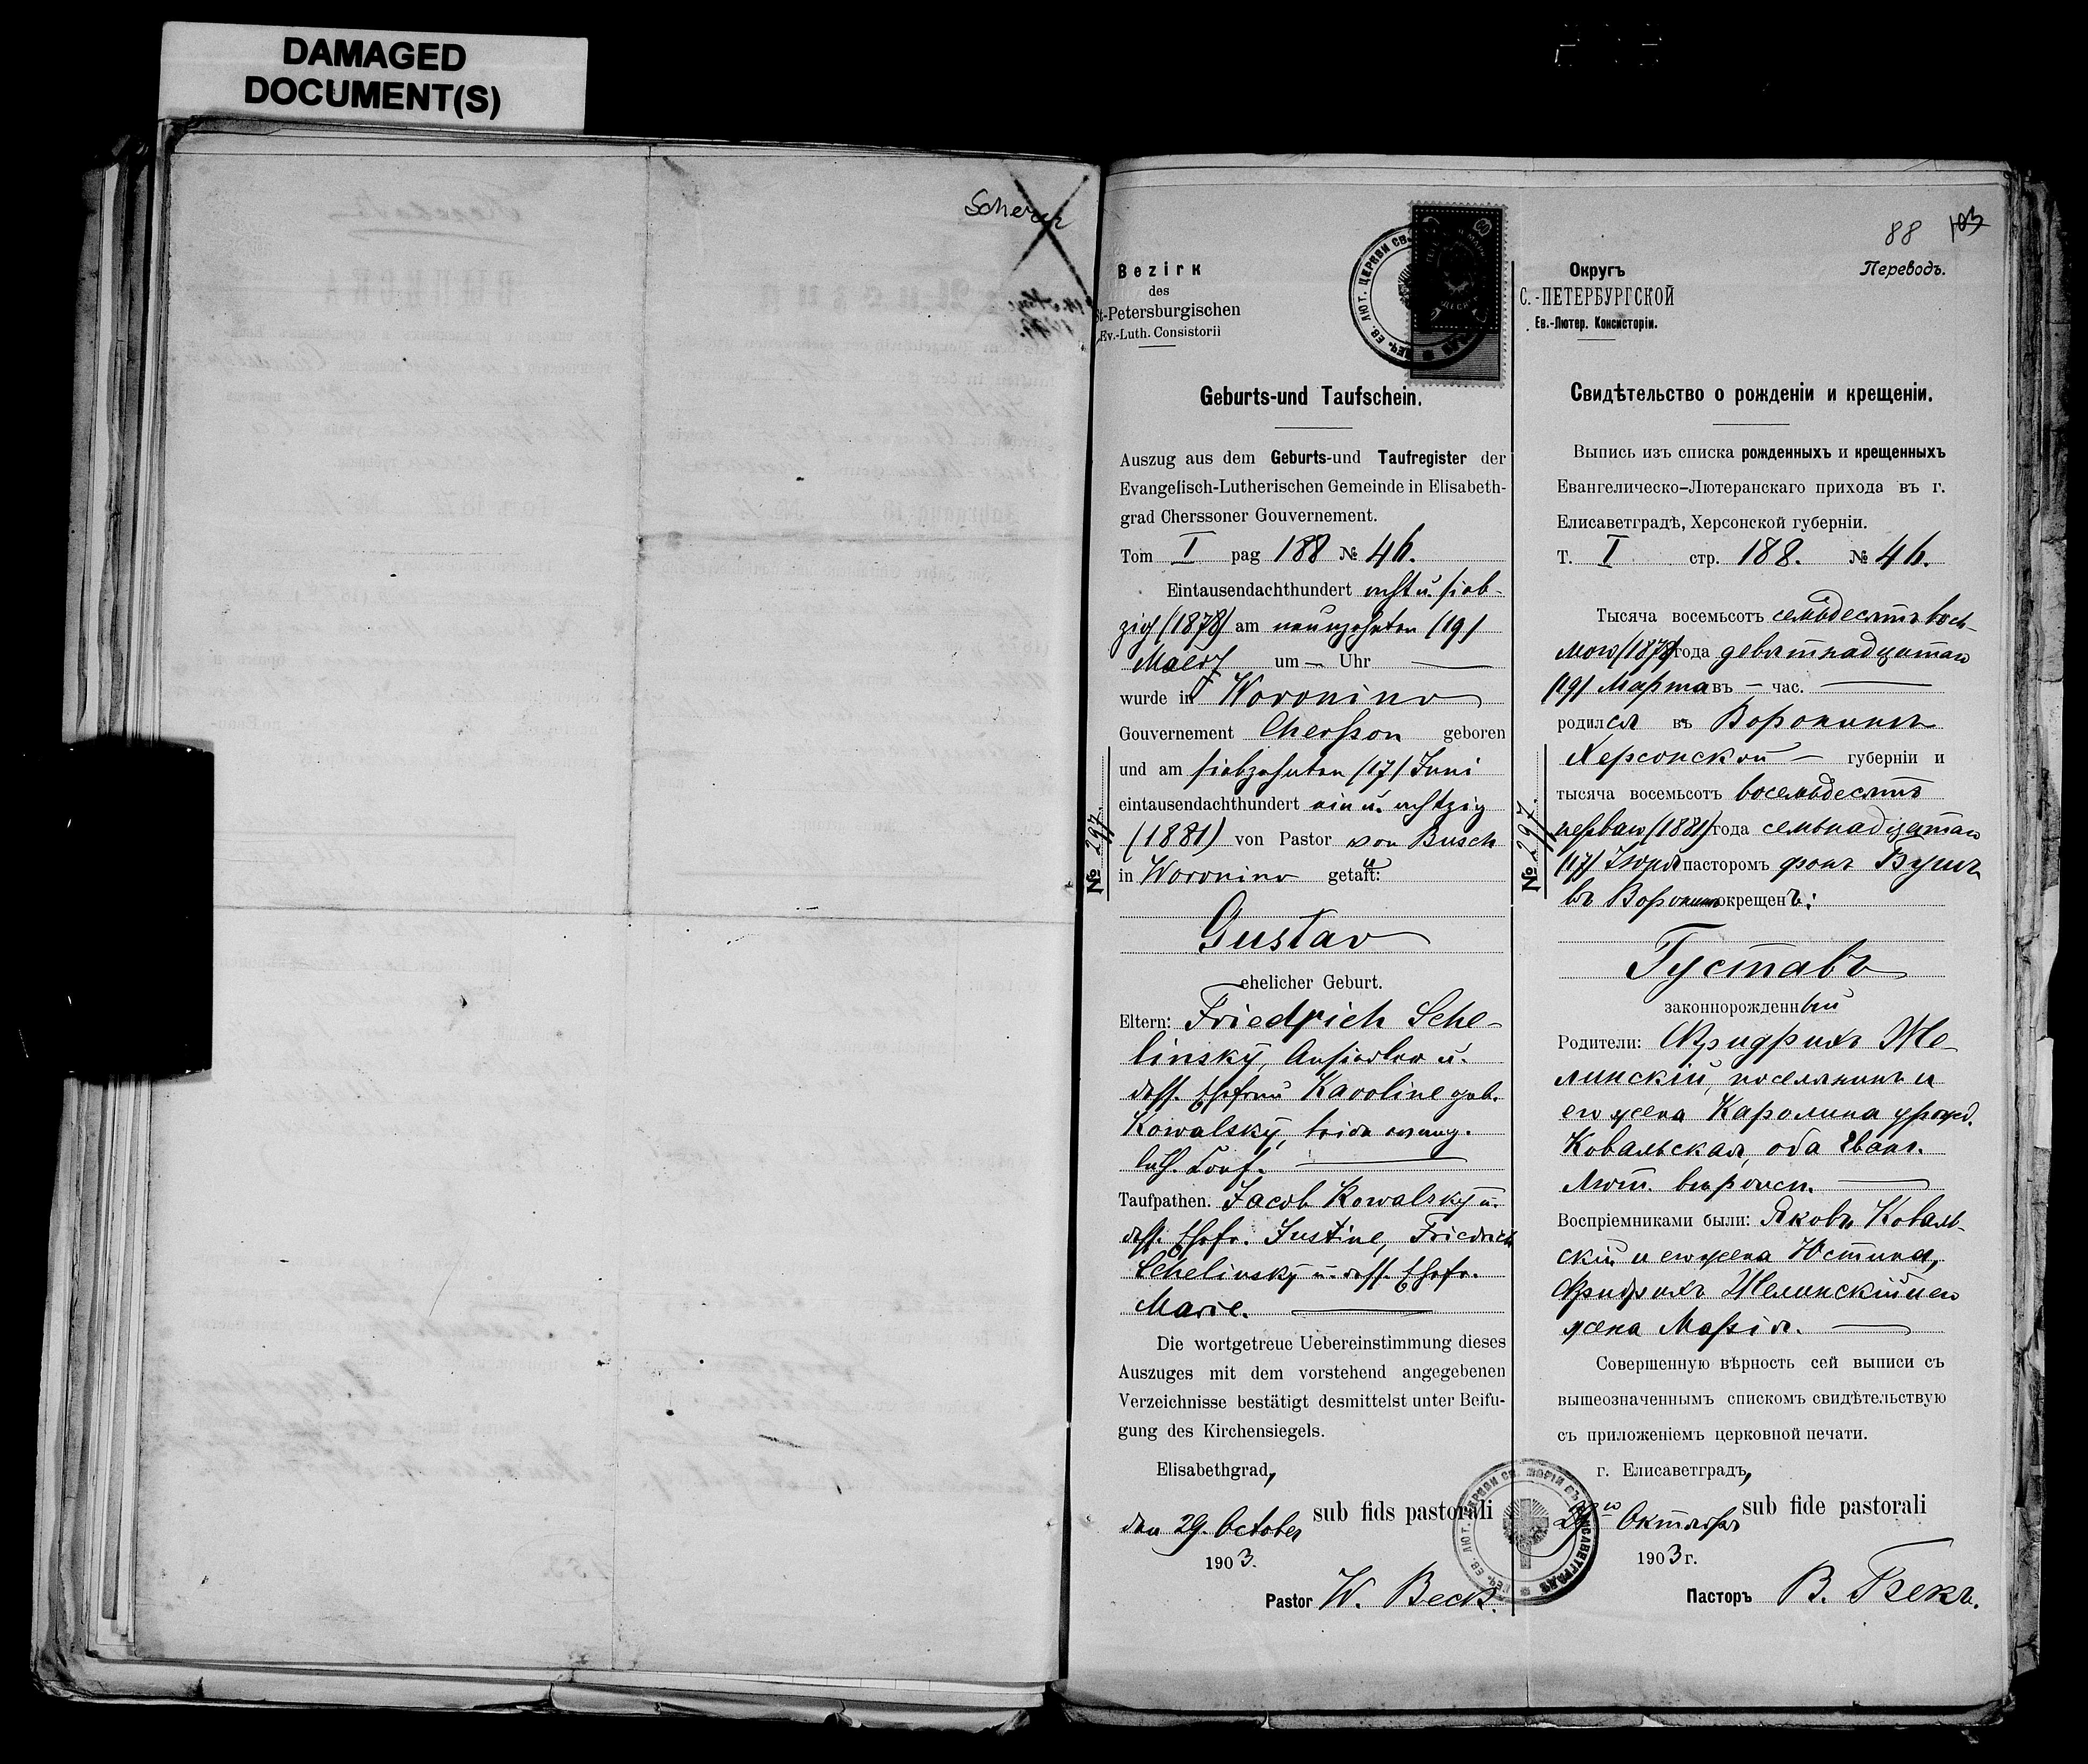 DAMAGED
DOCUMENT(S)
Scherer
Bezirk
des
St-Petersburgischen
Ev.-Luth. Consistorii
Geburts-und Taufschein.
Auszug aus dem Geburts-und Taufregister der
Evangelisch-Lutherischen Gemeinde in Elisabeth-
grad Cherssoner Gouvernement.
Tom I pag 188 № 46.
Eintausendachthundert acht u. sieb-
zig (1878) am neunzehnten (19)
Maerz um — Uhr —
wurde in Woronino
Gouvernement Chersson geboren
und am siebzehnten (17) Juni
eintausendachthundert ein u. achtzig
(1881) von Pastor von Busch
in Woronino getauft:
№ 297.
Gustav
ehelicher Geburt.
Eltern: Friedrich Sche-
linsky, Ansiedler u.
dess. Ehefrau Karoline geb.
Kowalsky, beide evang.
luth. Conf. —
Taufpathen. Jacob Kowalsky u.
dess. Ehefr. Justine, Friedrich
Schelinsky u. dess. Ehefr.
Marie. —
Die wortgetreue Uebereinstimmung dieses
Auszuges mit dem vorstehend angegebenen
Verzeichnisse bestätigt desmittelst unter Beifu-
gung des Kirchensiegels.
Elisabethgrad,
den 29. October sub fids pastorali
1903.
Pastor W. Beck.
88 103
Округъ Переводъ.
С.-ПЕТЕРБУРГСКОЙ
Ев.-Лютер. Консисторіи.
Свидѣтельство о рожденіи и крещеніи.
Выпись изъ списка рожденныхъ и крещенныхъ
Евангелическо-Лютеранскаго прихода въ г.
Елисаветградѣ, Херсонской губерніи.
Т. I стр. 188. № 46.
Тысяча восемьсотъ семьдесятъ вось-
мого (1878) года девятнадцатаго
(19) Марта въ — час. —
родился въ Воронинѣ
Херсонской — губерніи и
тысяча восемьсотъ восемьдесятъ
перваго (1881) года семьнадцатаго
(17) Іюня пасторомъ фонъ Бушъ
въ Воронинѣ окрещенъ:
№ 297.
Густавъ
законнорожденный
Родители: Фридрихъ Ше-
линскій, поселянинъ и
его жена Каролина урожд.
Ковальская, оба Еванг.
Лют. вѣроисп. —
Воспріемниками были: Яковъ Коваль-
скій и его жена Юстина,
Фридрихъ Шелинскій и его
жена Марія. —
Совершенную вѣрность сей выписи съ
вышеозначеннымъ спискомъ свидѣтельствую
съ приложеніемъ церковной печати.
г. Елисаветградъ,
29го Октября sub fide pastorali
1903 г.
Пасторъ В. Бекъ.